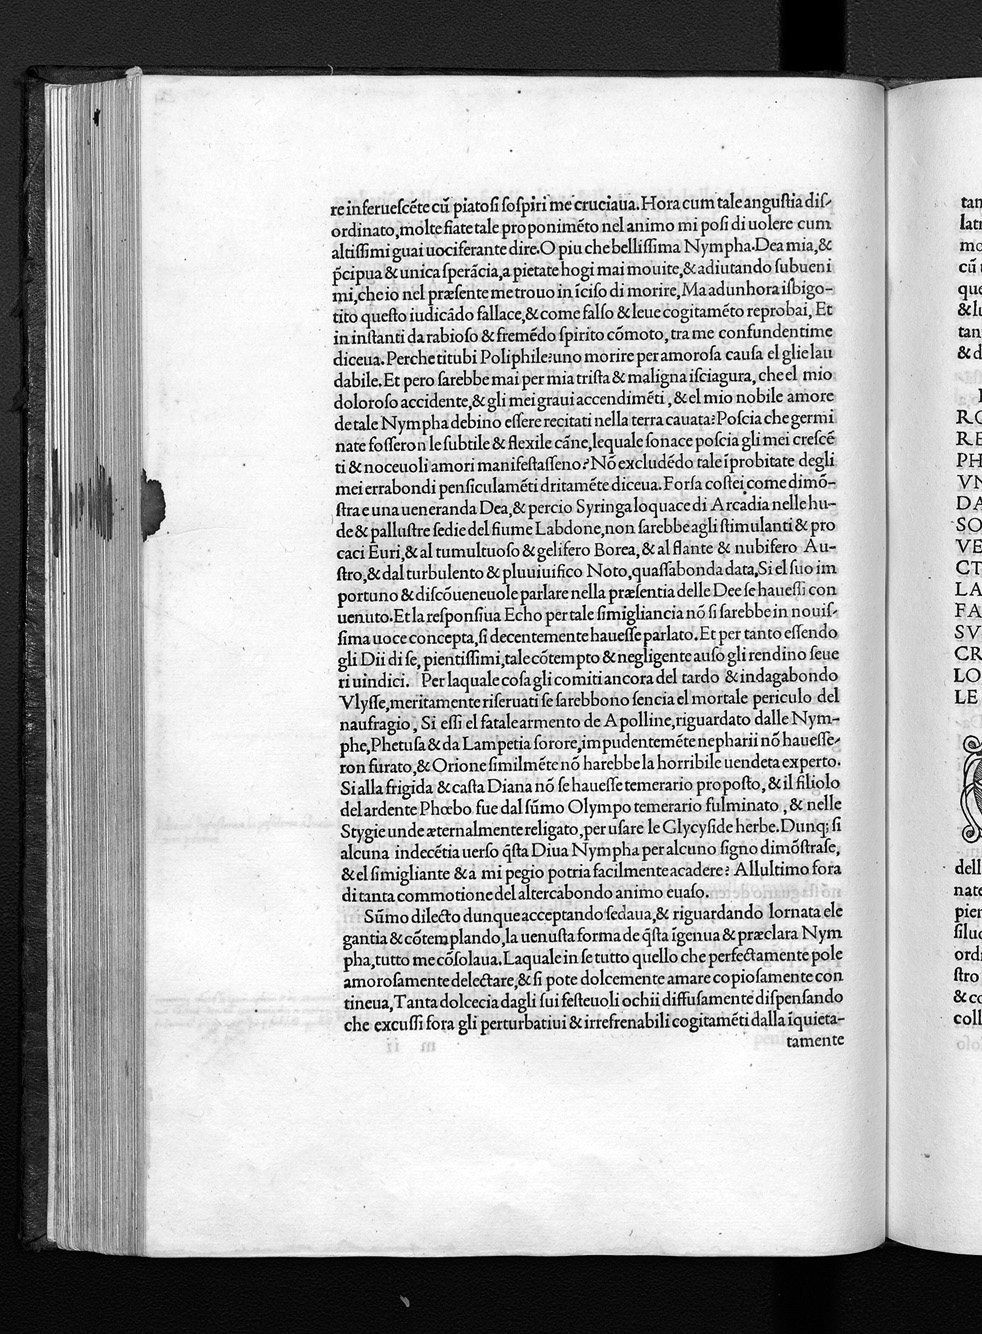 re inferuescẽte cũ piatosi sospiri me cruciaua. Hora cum tale angustia dis-
ordinato, molte fiate tale proponimẽto nel animo mi posi di uolere cum
altissimi guai uociferante dire. O piu che bellissima Nympha. Dea mia, &
p̃cipua & unica sperãcia, a pietate hogi mai mouite, & adiutando subueni
mi, che io nel præsente me trouo in ĩciso di morire, Ma ad unhora isbigo-
tito questo iudicãdo fallace, & come falso & leue cogitamẽto reprobai, Et
in instanti da rabioso & fremẽdo spirito cõmoto, tra me confundentime
diceua. Perche titubi Poliphile? uno morire per amorosa causa el glie lau
dabile. Et pero sarebbe mai per mia trista & maligna isciagura, che el mio
doloroso accidente, & gli mei graui accendimẽti, & el mio nobile amore
de tale Nympha debino essere recitati nella terra cauata? Poscia che germi
nate fosseron le subtile & flexile cãne, lequale sonace poscia gli mei crescẽ
ti & noceuoli amori manifestasseno? Nõ excludẽdo tale ĩprobitate degli
mei errabondi pensiculamẽti dritamẽte diceua. Forsa costei come dimõ-
stra e una ueneranda Dea, & percio Syringa loquace di Arcadia nelle hu-
de & pallustre sedie del fiume Labdone, non sarebbe agli stimulanti & pro
caci Euri, & al tumultuoso & gelifero Borea, & al flante & nubifero Au-
stro, & dal turbulento & pluuiuifico Noto, quassabonda data, Si el suo im
portuno & discõueneuole parlare nella præsentia delle Dee se hauessi con
uenuto. Et la responsiua Echo per tale simigliancia nõ si sarebbe in nouis-
sima uoce concepta, si decentemente hauesse parlato. Et per tanto essendo
gli Dii di se, pientissimi, tale cõtempto & negligente auso gli rendino seue
ri uindici. Per laquale cosa gli comiti ancora del tardo & indagabondo
Vlysse, meritamente riseruati se sarebbono sencia el mortale periculo del
naufragio, Si essi el fatale armento de Apolline, riguardato dalle Nym-
phe, Phetusa & da Lampetia sorore, impudentemẽte nepharii nõ hauesse-
ron furato, & Orione similmẽte nõ harebbe la horribile uendeta experto.
Si alla frigida & casta Diana nõ se hauesse temerario proposto, & il filiolo
del ardente Phœbo fue dal sũmo Olympo temerario fulminato, & nelle
Stygie unde æternalmente religato, per usare le Glycyside herbe. Dunq; si
alcuna indecẽtia uerso q̃sta Diua Nympha per alcuno signo dimõstrase,
& el simigliante & a mi pegio potria facilmente acadere? Allultimo fora
di tanta commotione del altercabondo animo euaso.
Sũmo dilecto dunque acceptando sedaua, & riguardando lornata ele
gantia & cõtemplando, la uenusta forma de q̃sta ĩgenua & præclara Nym
pha, tutto me cõsolaua. Laquale in se tutto quello che perfectamente pole
amorosamente delectare, & si pote dolcemente amare copiosamente con
tineua, Tanta dolcecia dagli sui festeuoli ochii diffusamente dispensando
che excussi fora gli perturbatiui & irrefrenabili cogitamẽti dalla ĩquieta-
tamente
tan
latr
mo
cũ
que
& lu
tan
& d
RO
RE
PH
VN
DA
SO
VE
CT
LA
FA
SV
CR
LO
LE
dell
nate
pier
silu
ordi
stro
& co
coll